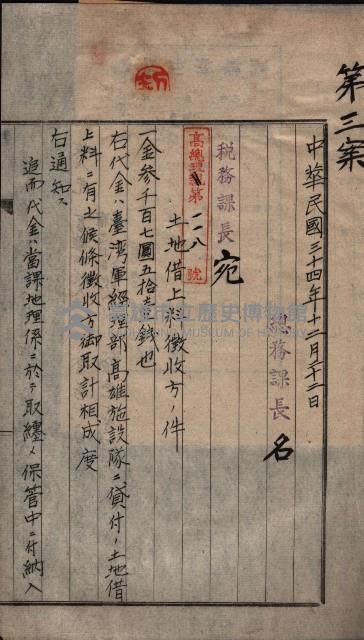 第三案
中華民國三十四年十二月二十二日
總務課長 名
稅務課長 宛
高總理經第一一八號
土地借上料徵收方ノ件
一金參千百七圓五拾壱錢也
右代金ハ臺湾軍經理部高雄施設隊ニ貸付ノ土地借
上料ニ有之候條徵收方御取計相成度
右通知ス
追而代金ハ當課地理係ニ於テ取纏メ保管中ニ付納入
高雄市立歷史博物館
KAOHSIUNG MUSEUM OF HISTORY